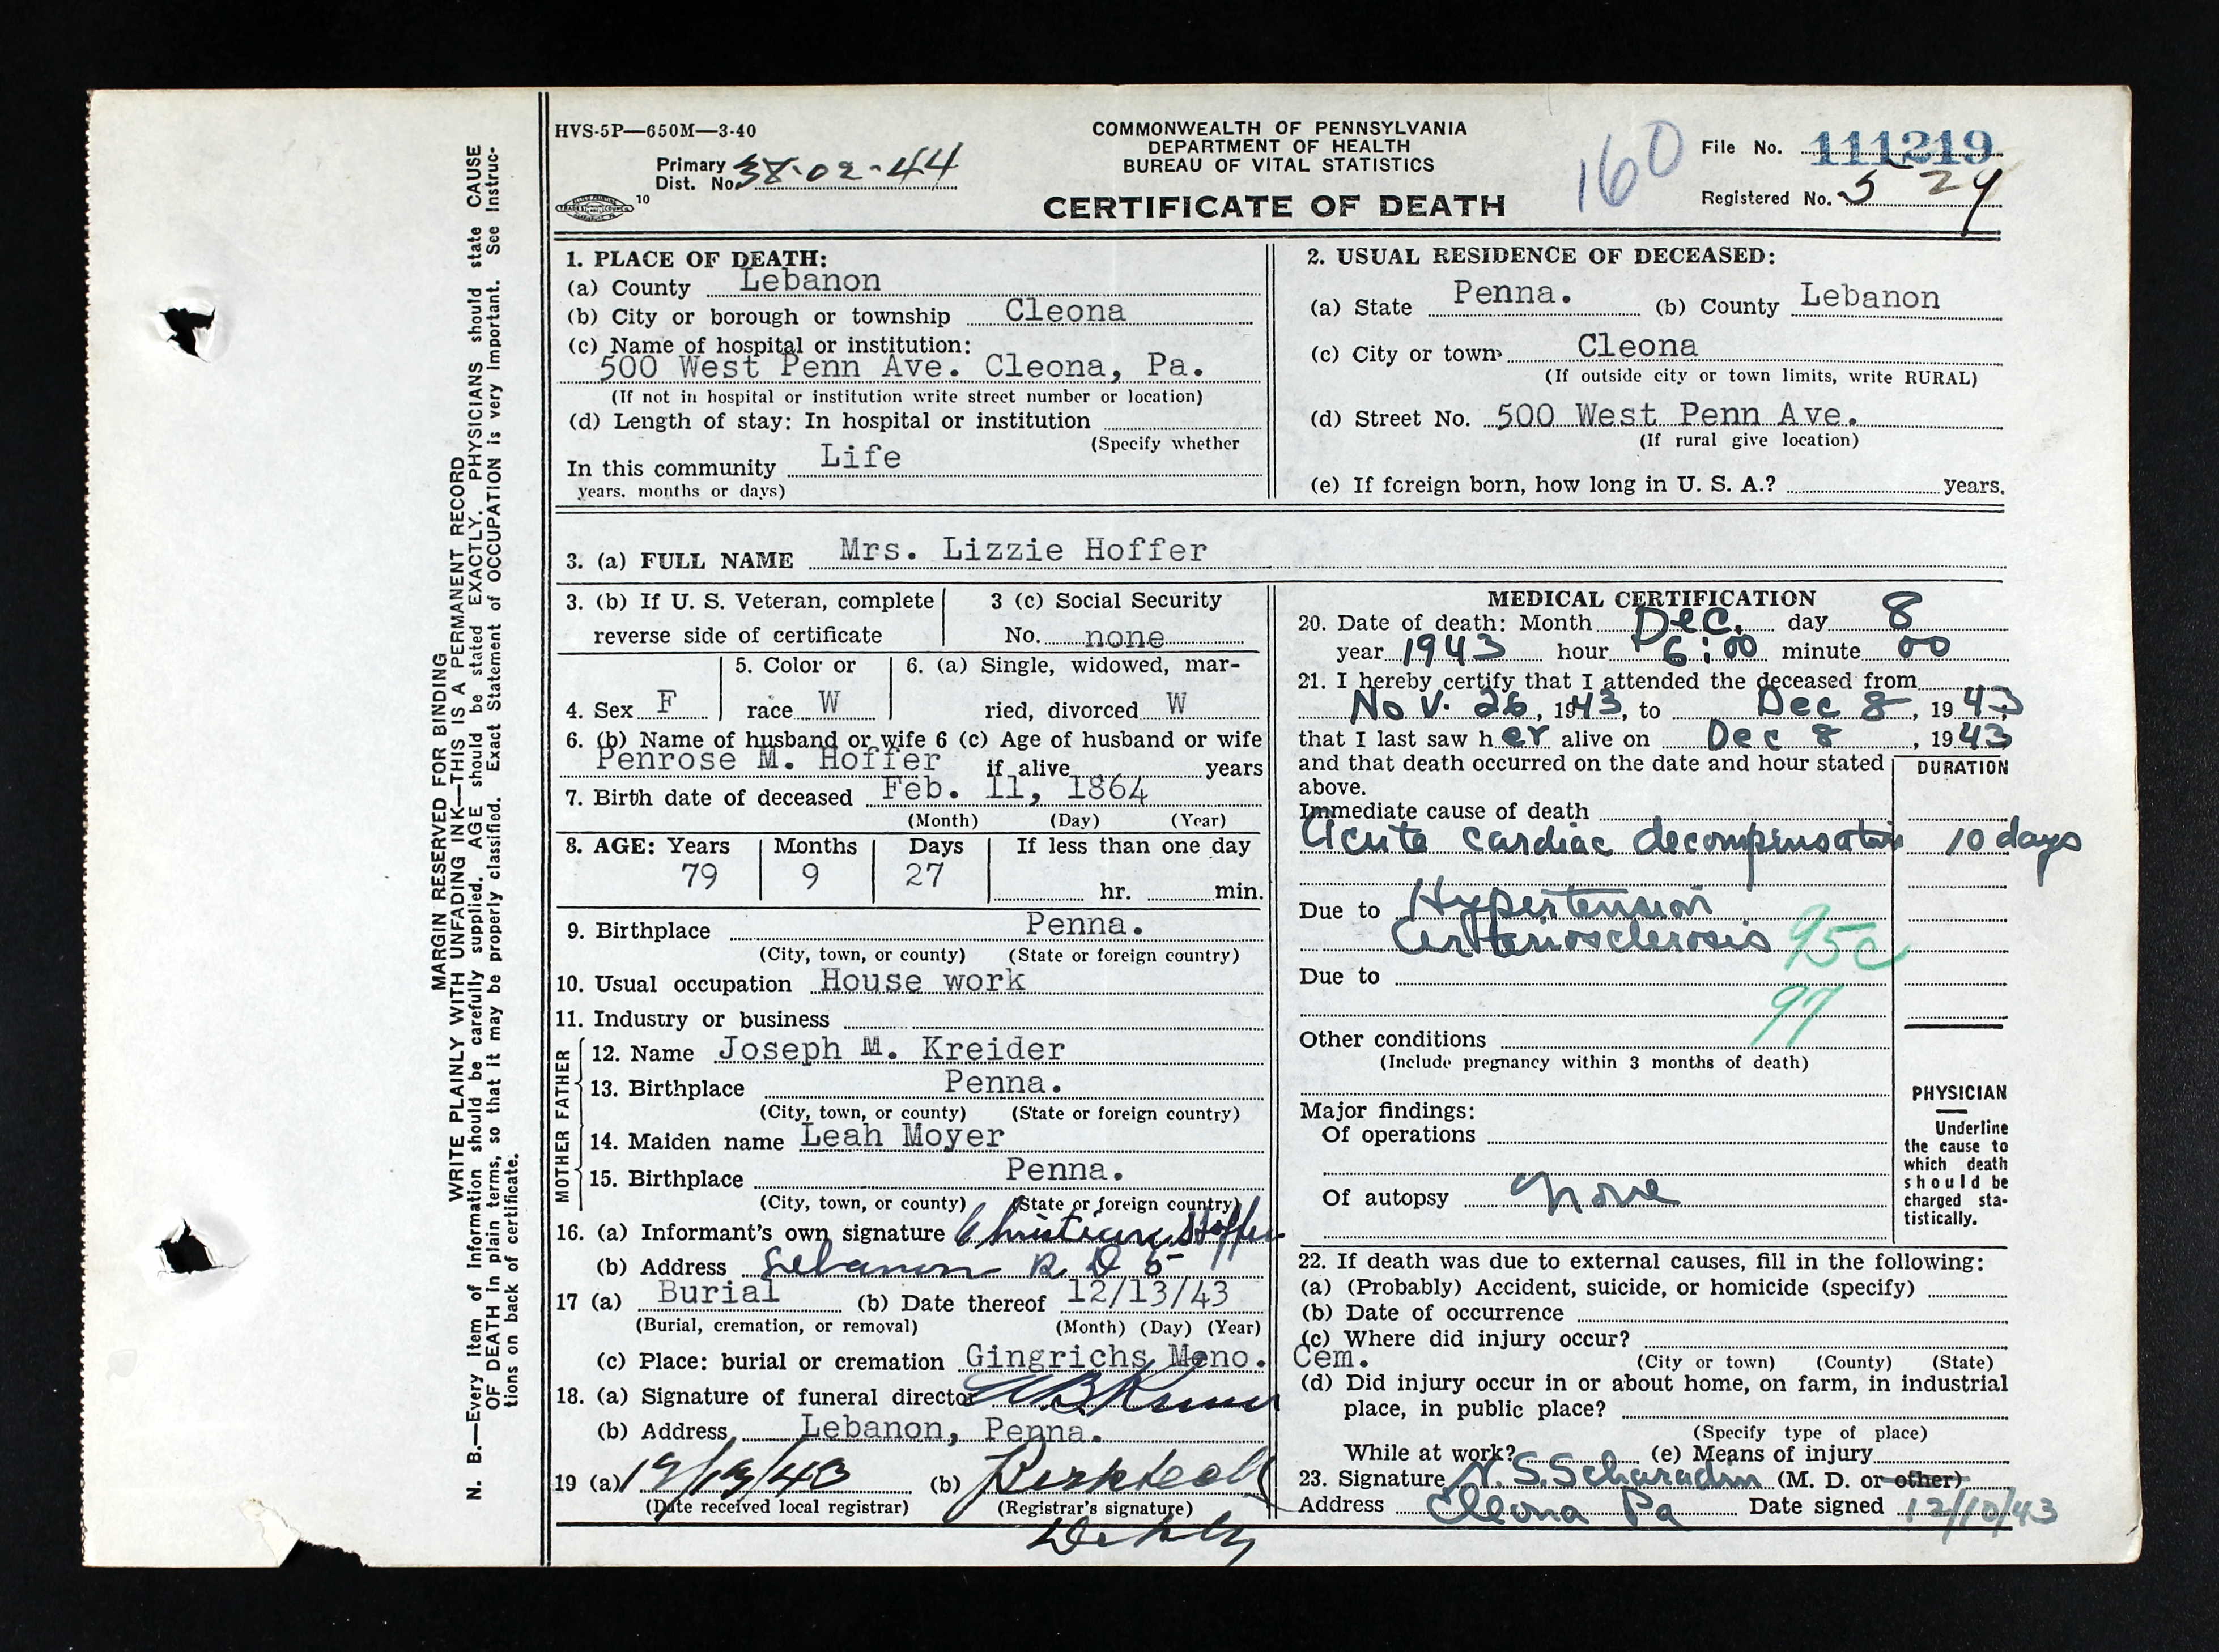 HVS-5P—650M—3-40
COMMONWEALTH OF PENNSYLVANIA
DEPARTMENT OF HEALTH
BUREAU OF VITAL STATISTICS
CERTIFICATE OF DEATH
Primary Dist. No. 38-02-44
10
160
File No. 111219
Registered No. 5 29
MARGIN RESERVED FOR BINDING
WRITE PLAINLY WITH UNFADING INK—THIS IS A PERMANENT RECORD
N. B.—Every item of information should be carefully supplied. AGE should be stated EXACTLY. PHYSICIANS should state CAUSE
OF DEATH in plain terms, so that it may be properly classified. Exact Statement of OCCUPATION is very important. See Instruc-
tions on back of certificate.
1. PLACE OF DEATH:
(a) County Lebanon
(b) City or borough or township Cleona
(c) Name of hospital or institution:
500 West Penn Ave. Cleona, Pa.
(If not in hospital or institution write street number or location)
(d) Length of stay: In hospital or institution
(Specify whether
In this community Life
years. months or days)
2. USUAL RESIDENCE OF DECEASED:
(a) State Penna. (b) County Lebanon
(c) City or town Cleona
(If outside city or town limits, write RURAL)
(d) Street No. 500 West Penn Ave.
(If rural give location)
(e) If foreign born, how long in U. S. A.? years.
3. (a) FULL NAME Mrs. Lizzie Hoffer
3. (b) If U. S. Veteran, complete
reverse side of certificate
3 (c) Social Security
No. none
4. Sex F
5. Color or
race W
6. (a) Single, widowed, mar-
ried, divorced W
6. (b) Name of husband or wife 6 (c) Age of husband or wife
Penrose M. Hoffer if alive years
7. Birth date of deceased Feb. 11, 1864
(Month) (Day) (Year)
8. AGE: Years Months Days If less than one day
79 9 27 hr. min.
9. Birthplace Penna.
(City, town, or county) (State or foreign country)
10. Usual occupation House work
11. Industry or business
FATHER
12. Name Joseph M. Kreider
13. Birthplace Penna.
(City, town, or county) (State or foreign country)
MOTHER
14. Maiden name Leah Moyer
15. Birthplace Penna.
(City, town, or county) (State or foreign country)
16. (a) Informant's own signature Christian Hoffer
(b) Address Lebanon R D 5
17 (a) Burial (b) Date thereof 12/13/43
(Burial, cremation, or removal) (Month) (Day) (Year)
(c) Place: burial or cremation Gingrichs Meno. Cem.
18. (a) Signature of funeral director
(b) Address Lebanon, Penna.
19 (a) (b)
(Date received local registrar) (Registrar's signature)
MEDICAL CERTIFICATION
20. Date of death: Month Dec. day 8
year 1943 hour 6:00 minute 00
21. I hereby certify that I attended the deceased from
Nov. 26, 1943, to Dec 8, 1943
that I last saw her alive on Dec 8, 1943
and that death occurred on the date and hour stated
above.
DURATION
Immediate cause of death
Acute cardiac decompensation 10 days
Due to Hypertension
Arteriosclerosis 95c
Due to
97
Other conditions
(Include pregnancy within 3 months of death)
Major findings:
Of operations
Of autopsy None
PHYSICIAN
Underline
the cause to
which death
should be
charged sta-
tistically.
22. If death was due to external causes, fill in the following:
(a) (Probably) Accident, suicide, or homicide (specify)
(b) Date of occurrence
(c) Where did injury occur?
(City or town) (County) (State)
(d) Did injury occur in or about home, on farm, in industrial
place, in public place?
(Specify type of place)
While at work? (e) Means of injury
23. Signature N. S. Scharadin (M. D. or other)
Address Cleona Pa Date signed 12/10/43